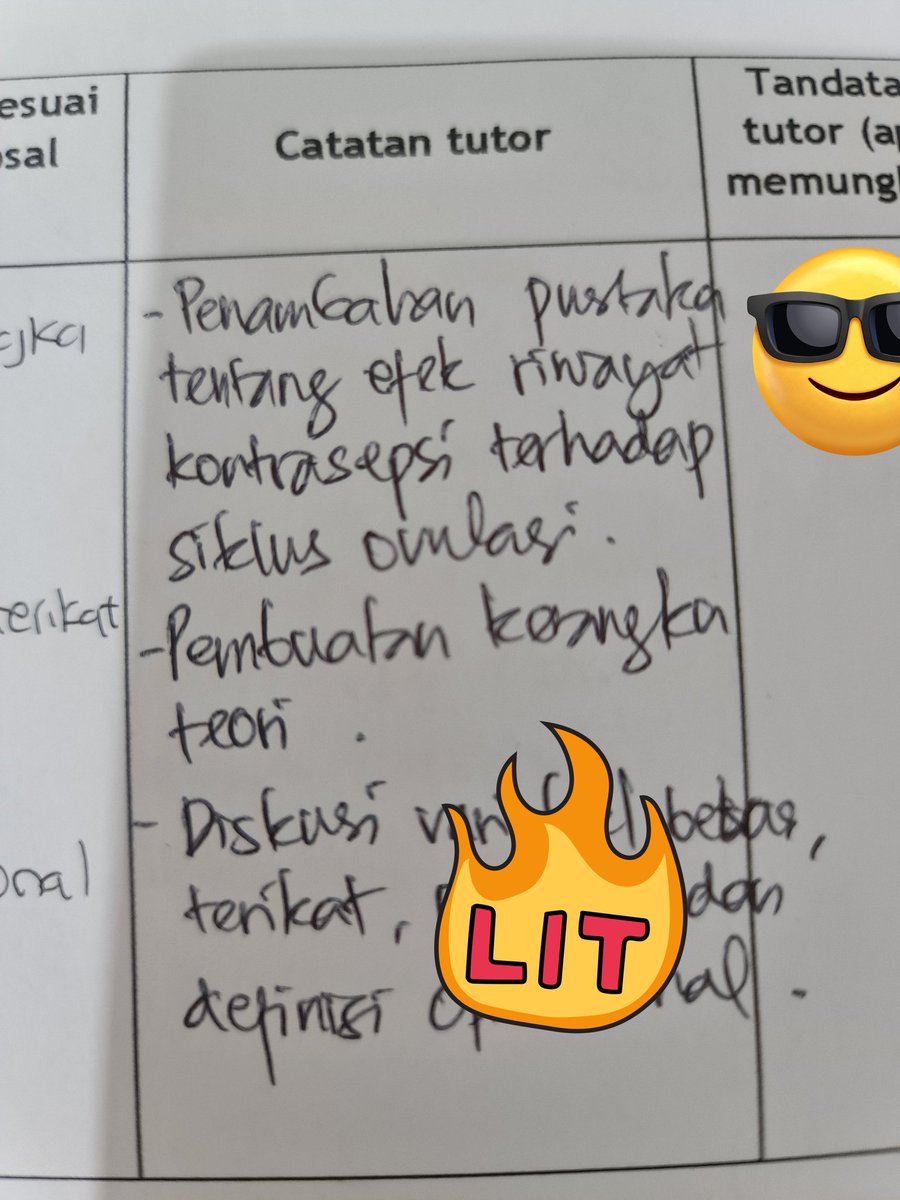 esuai
osal
Catatan tutor
Tandata
tutor (ap
memungk
ajka
terikat
onal
- Penambahan pustaka
tentang efek riwayat
kontrasepsi terhadap
siklus ovulasi.
- Pembuatan kerangka
teori.
- Diskusi bebas,
terikat, dan
definisi nal.
LIT